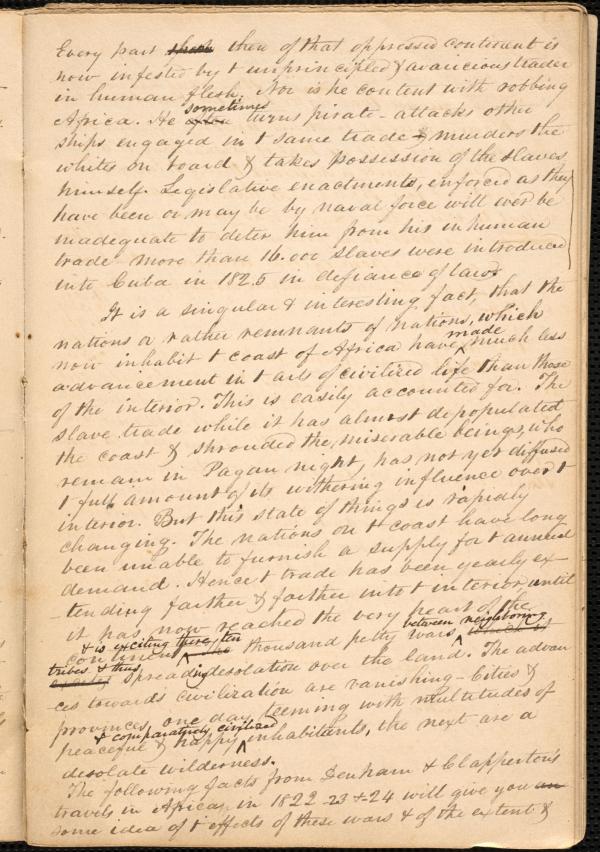 Every part shook then of that oppressed continent is
now infested by t unprincipled & avaricious trader
in human flesh. Nor is he content with robbing
sometimes
Africa. He often turns pirate - attacks other
ships engaged in t same trade & murders the
whites on board & takes possession of the slaves
himself. Legislative enactments, enforced as they
have been or may be by naval force will ever be
inadequate to deter him from his inhuman
trade more than 16.000 slaves were introduced
into Cuba in 1825 in defiance of laws
It is a singular & interesting fact, that the
nations or rather remnants of nations, which
made
now inhabit t coast of Africa have ^ much less
advancement in t arts of civilized life than those
of the interior. This is easily accounted for. The
slave trade while it has almost depopulated
the coast & shrouded the, miserable beings, who
remain in Pagan night, has not yet diffused
t full amount of its withering influence over t
interior. But this state of things is rapidly
changing. The nations on t coast have long
been unable to furnish a supply for t annual
demand. Hence t trade has been yearly ex-
-tending farther & farther into t interior until
it has now reached the very heart of the
& is exciting there ten between neighboring
continent ^ the thousand petty wars ^
tribes & thus spreading desolation over the land. The advan
ces towards civilization are vanishing - Cities &
provinces, one day teeming with multitudes of
& comparatively civilized
peaceful & happy ^ inhabitants, the next are a
desolate wilderness.
The following facts from Denham & Clapperton's
travels in Africa, in 1822 -23 & 24 will give you an
some idea of t effects of these wars & of the extent &